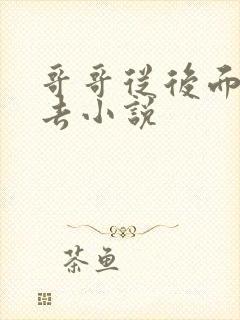 哥哥從後面
去小說
茶魚